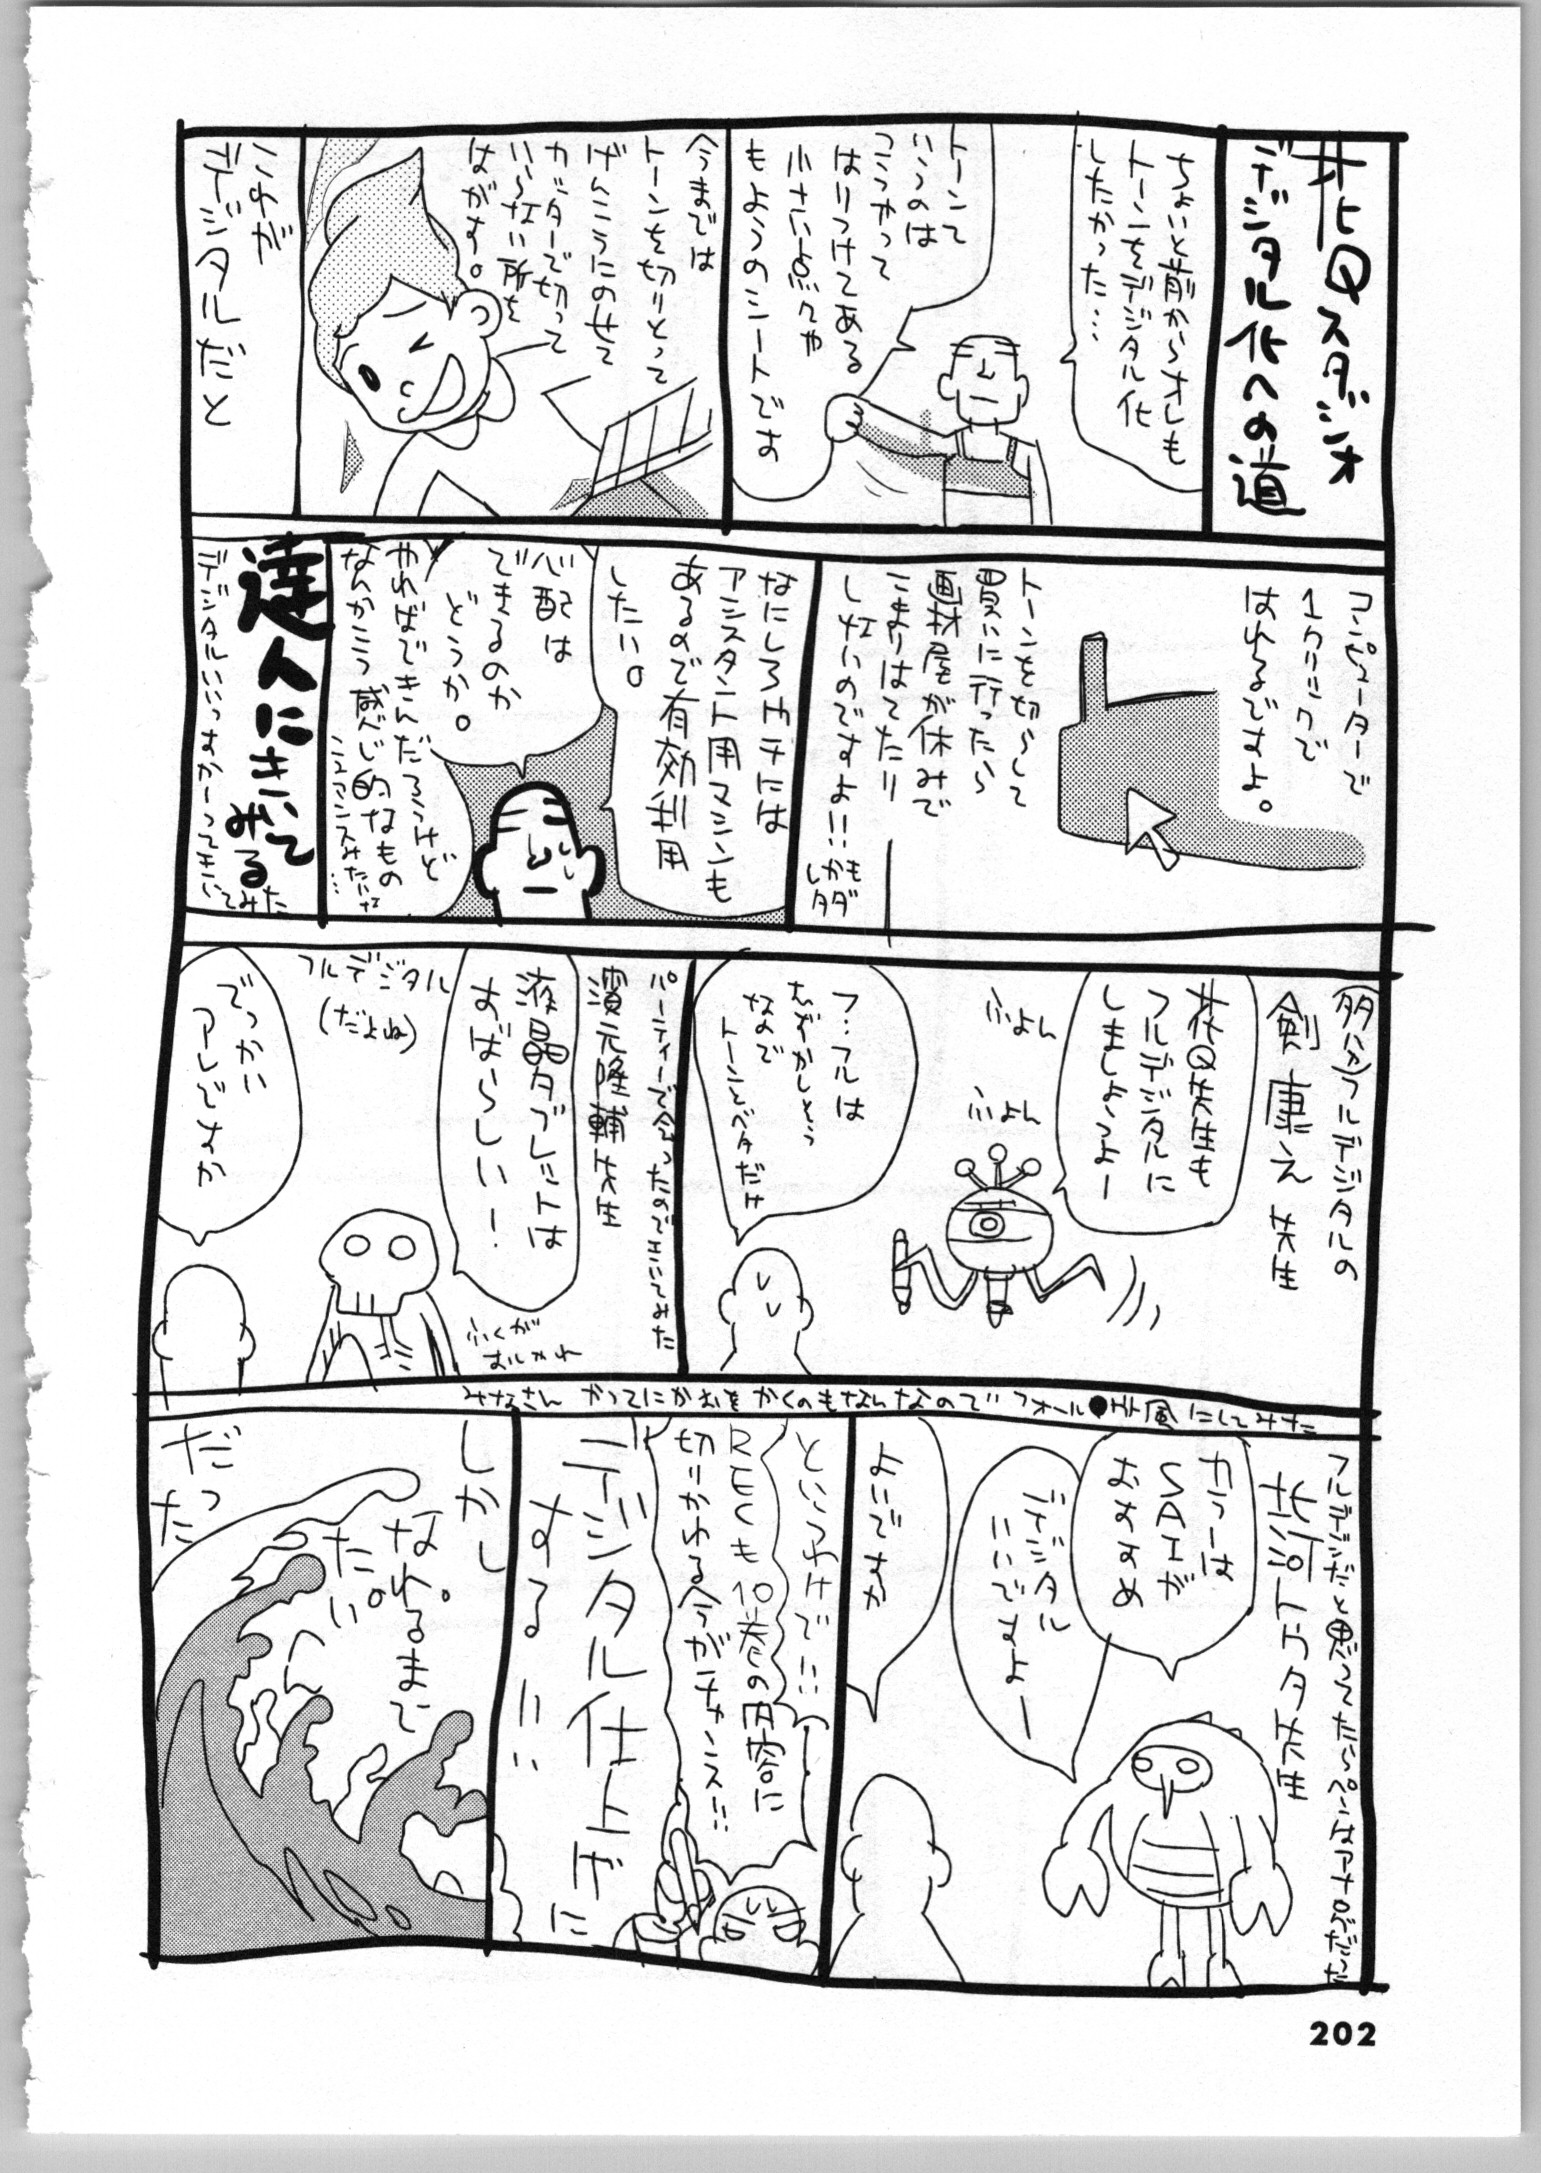 井Qスタジオ
デジタル化への道
ちょいと前からオレも
トーンをデジタル化
したかった…
トーンて
いうのは
こうやって
はりつけてある
小さい点々や
もようのシートです
今までは
トーンを切りとって
げんこうにのせて
カッターで切って
いらない所を
はがす。
これが
デジタルだと
コンピューターで
1クリックで
はれるですよ。
トーンを切らして
買いに行ったら
画材屋が休みで
こまりはてたり
しないのですよ!!
しかも
タダ
なにしろウチには
アシスタント用マシンも
あるので有効利用
したい。
心配は
できるのか
どうか。
やればできんだろうけど
なんかこう感じ的なもの
ニュアンスみたいな…
達人にきいて
みる
デジタルいいっすかーってきいてみた
(多分)フルデジタルの
剣康之先生
井Q先生も
フルデジタルに
しましょうよー
ふよん
ふよん
フ…フルは
むずかしそう
なので
トーンとベタだけ
パーティーで会ったのできいてみた
濱元隆輔先生
液晶タブレットは
すばらしいー!
フルデジタル
(だよね)
でっかい
アレですか
ふくが
おしゃれ
みなさん かってにかおをかくのもなんなのでフォール●ウト風にしてみた
フルデジだと思ってたらペンはアナログだった
北河トウタ先生
カラーは
SAIが
おすすめ
デジタル
いいですよー
よいですか
というわけで!!
RECも10巻の内容に
切りかわる今がチャンス!!
デジタル仕上げに
する!!
しかし
なれるまで
たい。
だった
202